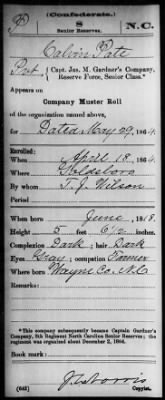 (Confederate.)
P 8 N.C.
Senior Reserves.
Calvin Pate
Pvt, Capt. Jas. M. Gardner's Company,
Reserve Force, Senior Class.*
Appears on
Company Muster Roll
of the organization named above,
for Dated May 29, 1864.
Enrolled:
When April 18, 1864.
Where Goldsboro
By whom T. J. Wilson
Period
When born June, 18 8.
Height 5 feet 6 1/2 inches.
Complexion Dark; hair Dark
Eyes Gray; occupation Farmer
Where born Wayne Co. N.C.
Remarks:
*This company subsequently became Captain Gardner's
Company, 8th Regiment North Carolina Senior Reserves; the
regiment was organized about December 2, 1864.
Book mark:
(642) Copyist.